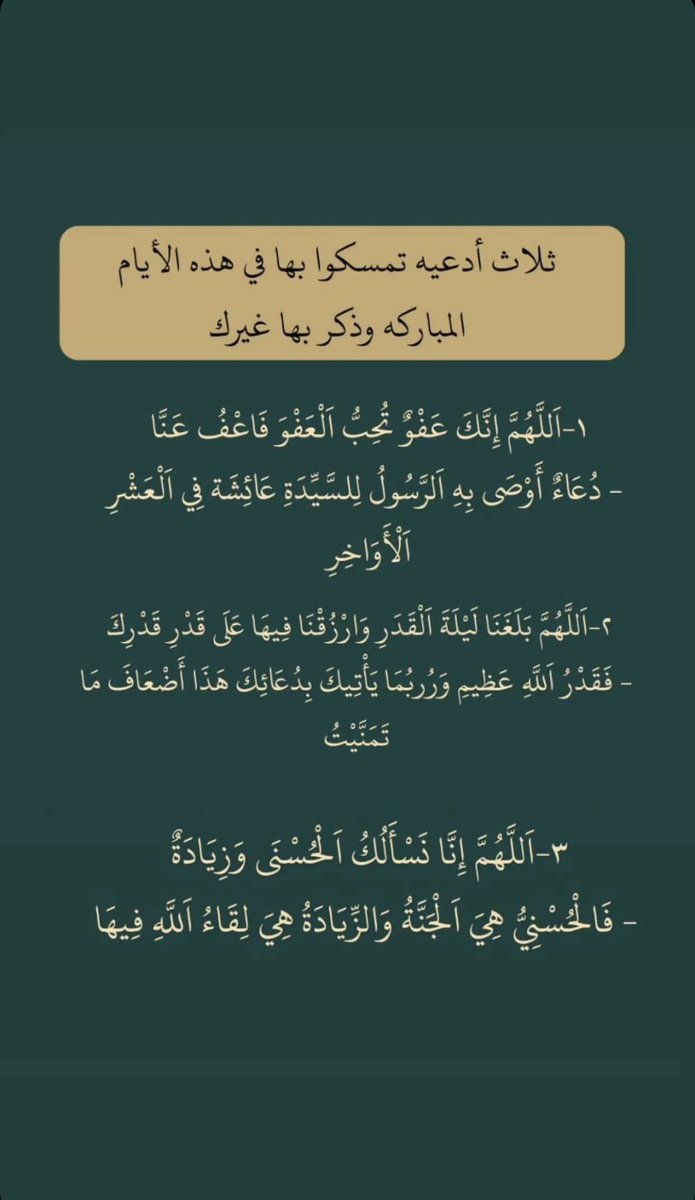 ثلاث أدعيه تمسكوا بها في هذه الأيام
المباركه وذكر بها غيرك
١-اَللَّهُمَّ إِنَّكَ عَفْوٌ تُحِبُّ اَلْعَفْوَ فَاعْفُ عَنَّا
- دُعَاءٌ أَوْصَى بِهِ اَلرَّسُولُ لِلسَّيِّدَةِ عَائِشَة فِي اَلْعَشْرِ
اَلْأَوَاخِرِ
٢-اَللَّهُمَّ بَلَغَنَا لَيْلَةَ اَلْقَدَرِ وَارْزُقْنَا فِيهَا عَلَى قَدْرِ قَدْرِكَ
- فَقَدْرُ اَللَّهِ عَظِيمِ وَرُبمَا يَأْتِيكَ بِدُعَائِكَ هَذَا أَضْعَافَ مَا
تَمَنَّيْتُ
٣-اَللَّهُمَّ إِنَّا نَسْأَلُكُ اَلْحُسْنَى وَزِيَادَةٌ
- فَالْحُسْنِيُّ هِيَ اَلْجَنَّةُ وَالزِّيَادَةُ هِيَ لِقَاءُ اَللَّهِ فِيهَا